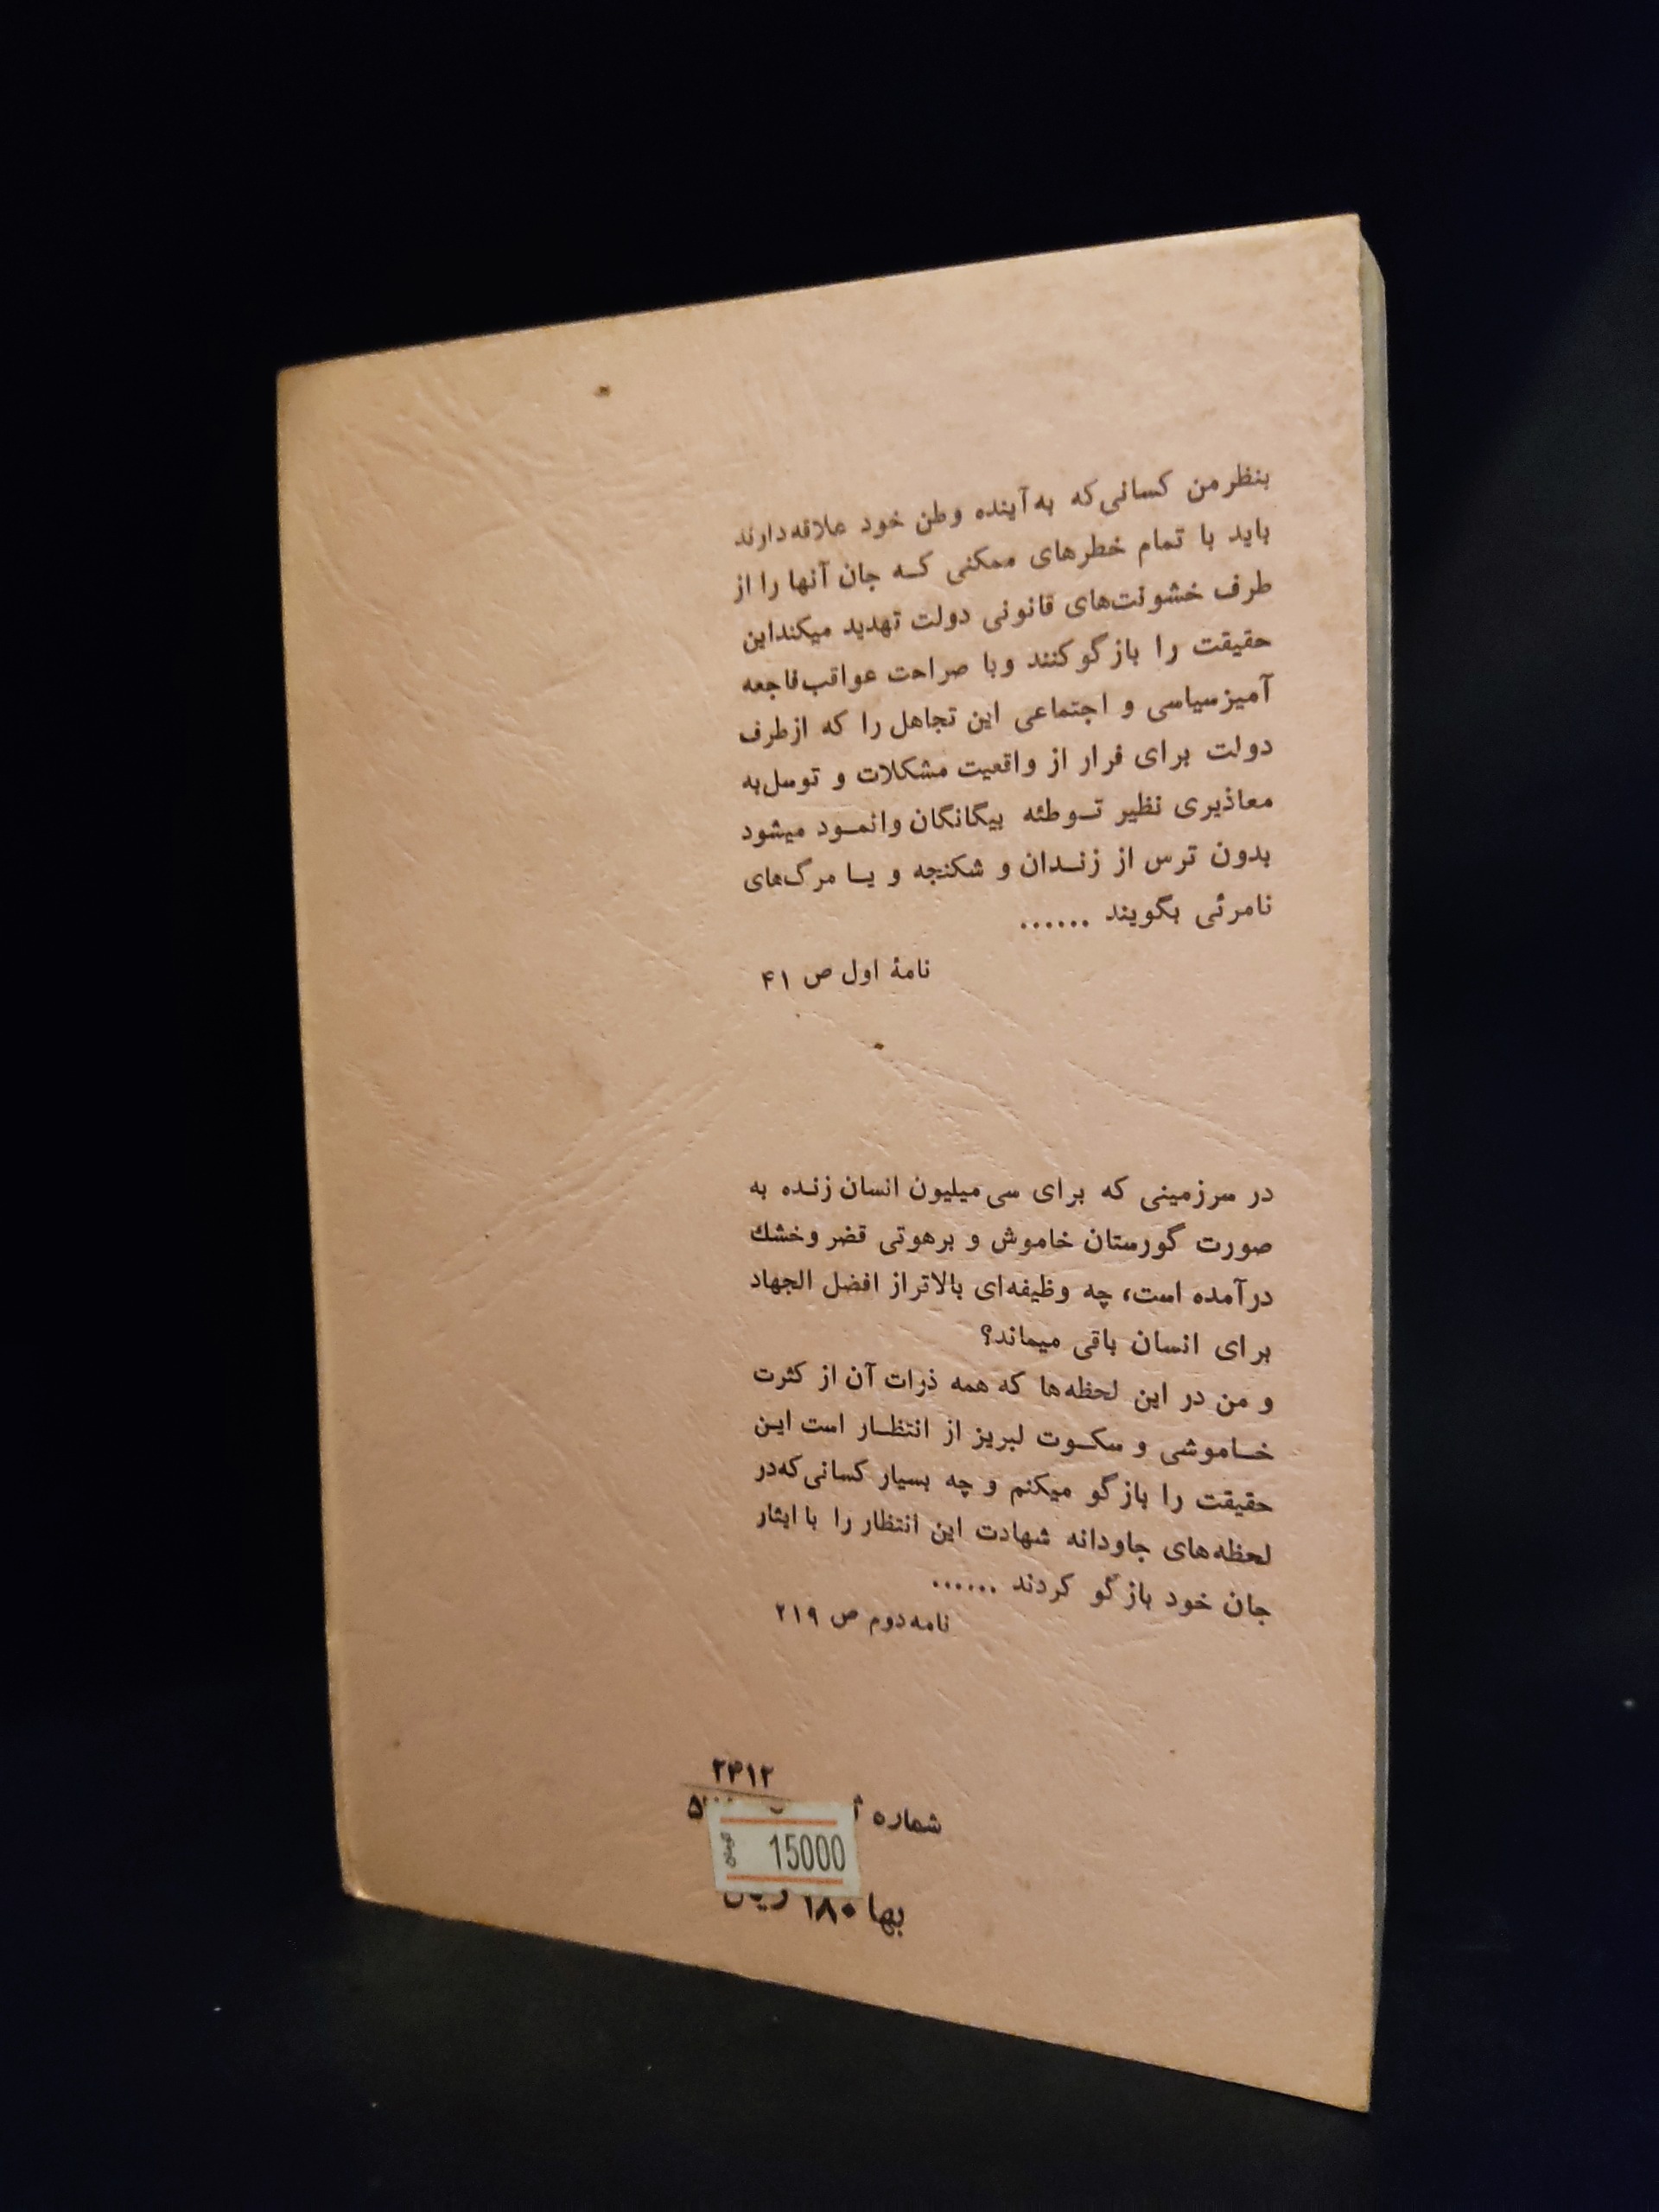 بنظر من کسانی‌که به‌آینده وطن خود علاقه‌دارند
باید با تمام خطرهای ممکنی کـه جان آنها را از
طرف خشونت‌های قانونی دولت تهدید میکنداین
حقیقت را بازگوکنند وبا صراحت عواقب‌فاجعه
آمیزسیاسی و اجتماعی این تجاهل را که ازطرف
دولت برای فرار از واقعیت مشکلات و توسل‌به
معاذیری نظیر تـوطئه بیگانگان وانمـود میشود
بدون ترس از زنـدان و شکنجه و یـا مرگ‌های
نامرئی بگویند ......
نامهٔ اول ص ۴۱
در سرزمینی که برای سی‌میلیون انسان زنـده به
صورت گورستان خاموش و برهوتی قضر وخشك
درآمده است، چه وظیفه‌ای بالاتراز افضل الجهاد
برای انسان باقی میماند؟
و من در این لحظه‌ها که همه ذرات آن از کثرت
خـاموشی و سکـوت لبریز از انتظـار است ایـن
حقیقت را بازگو میکنم و چه بسیار کسانی‌که‌در
لحظه‌های جاودانه شهادت این انتظار را با ایثار
جان خود بازگو کردند ......
نامه‌دوم ص ۲۱۹
۲۴۱۲
شماره
15000 تومان
بها ۱۸۰ ریال